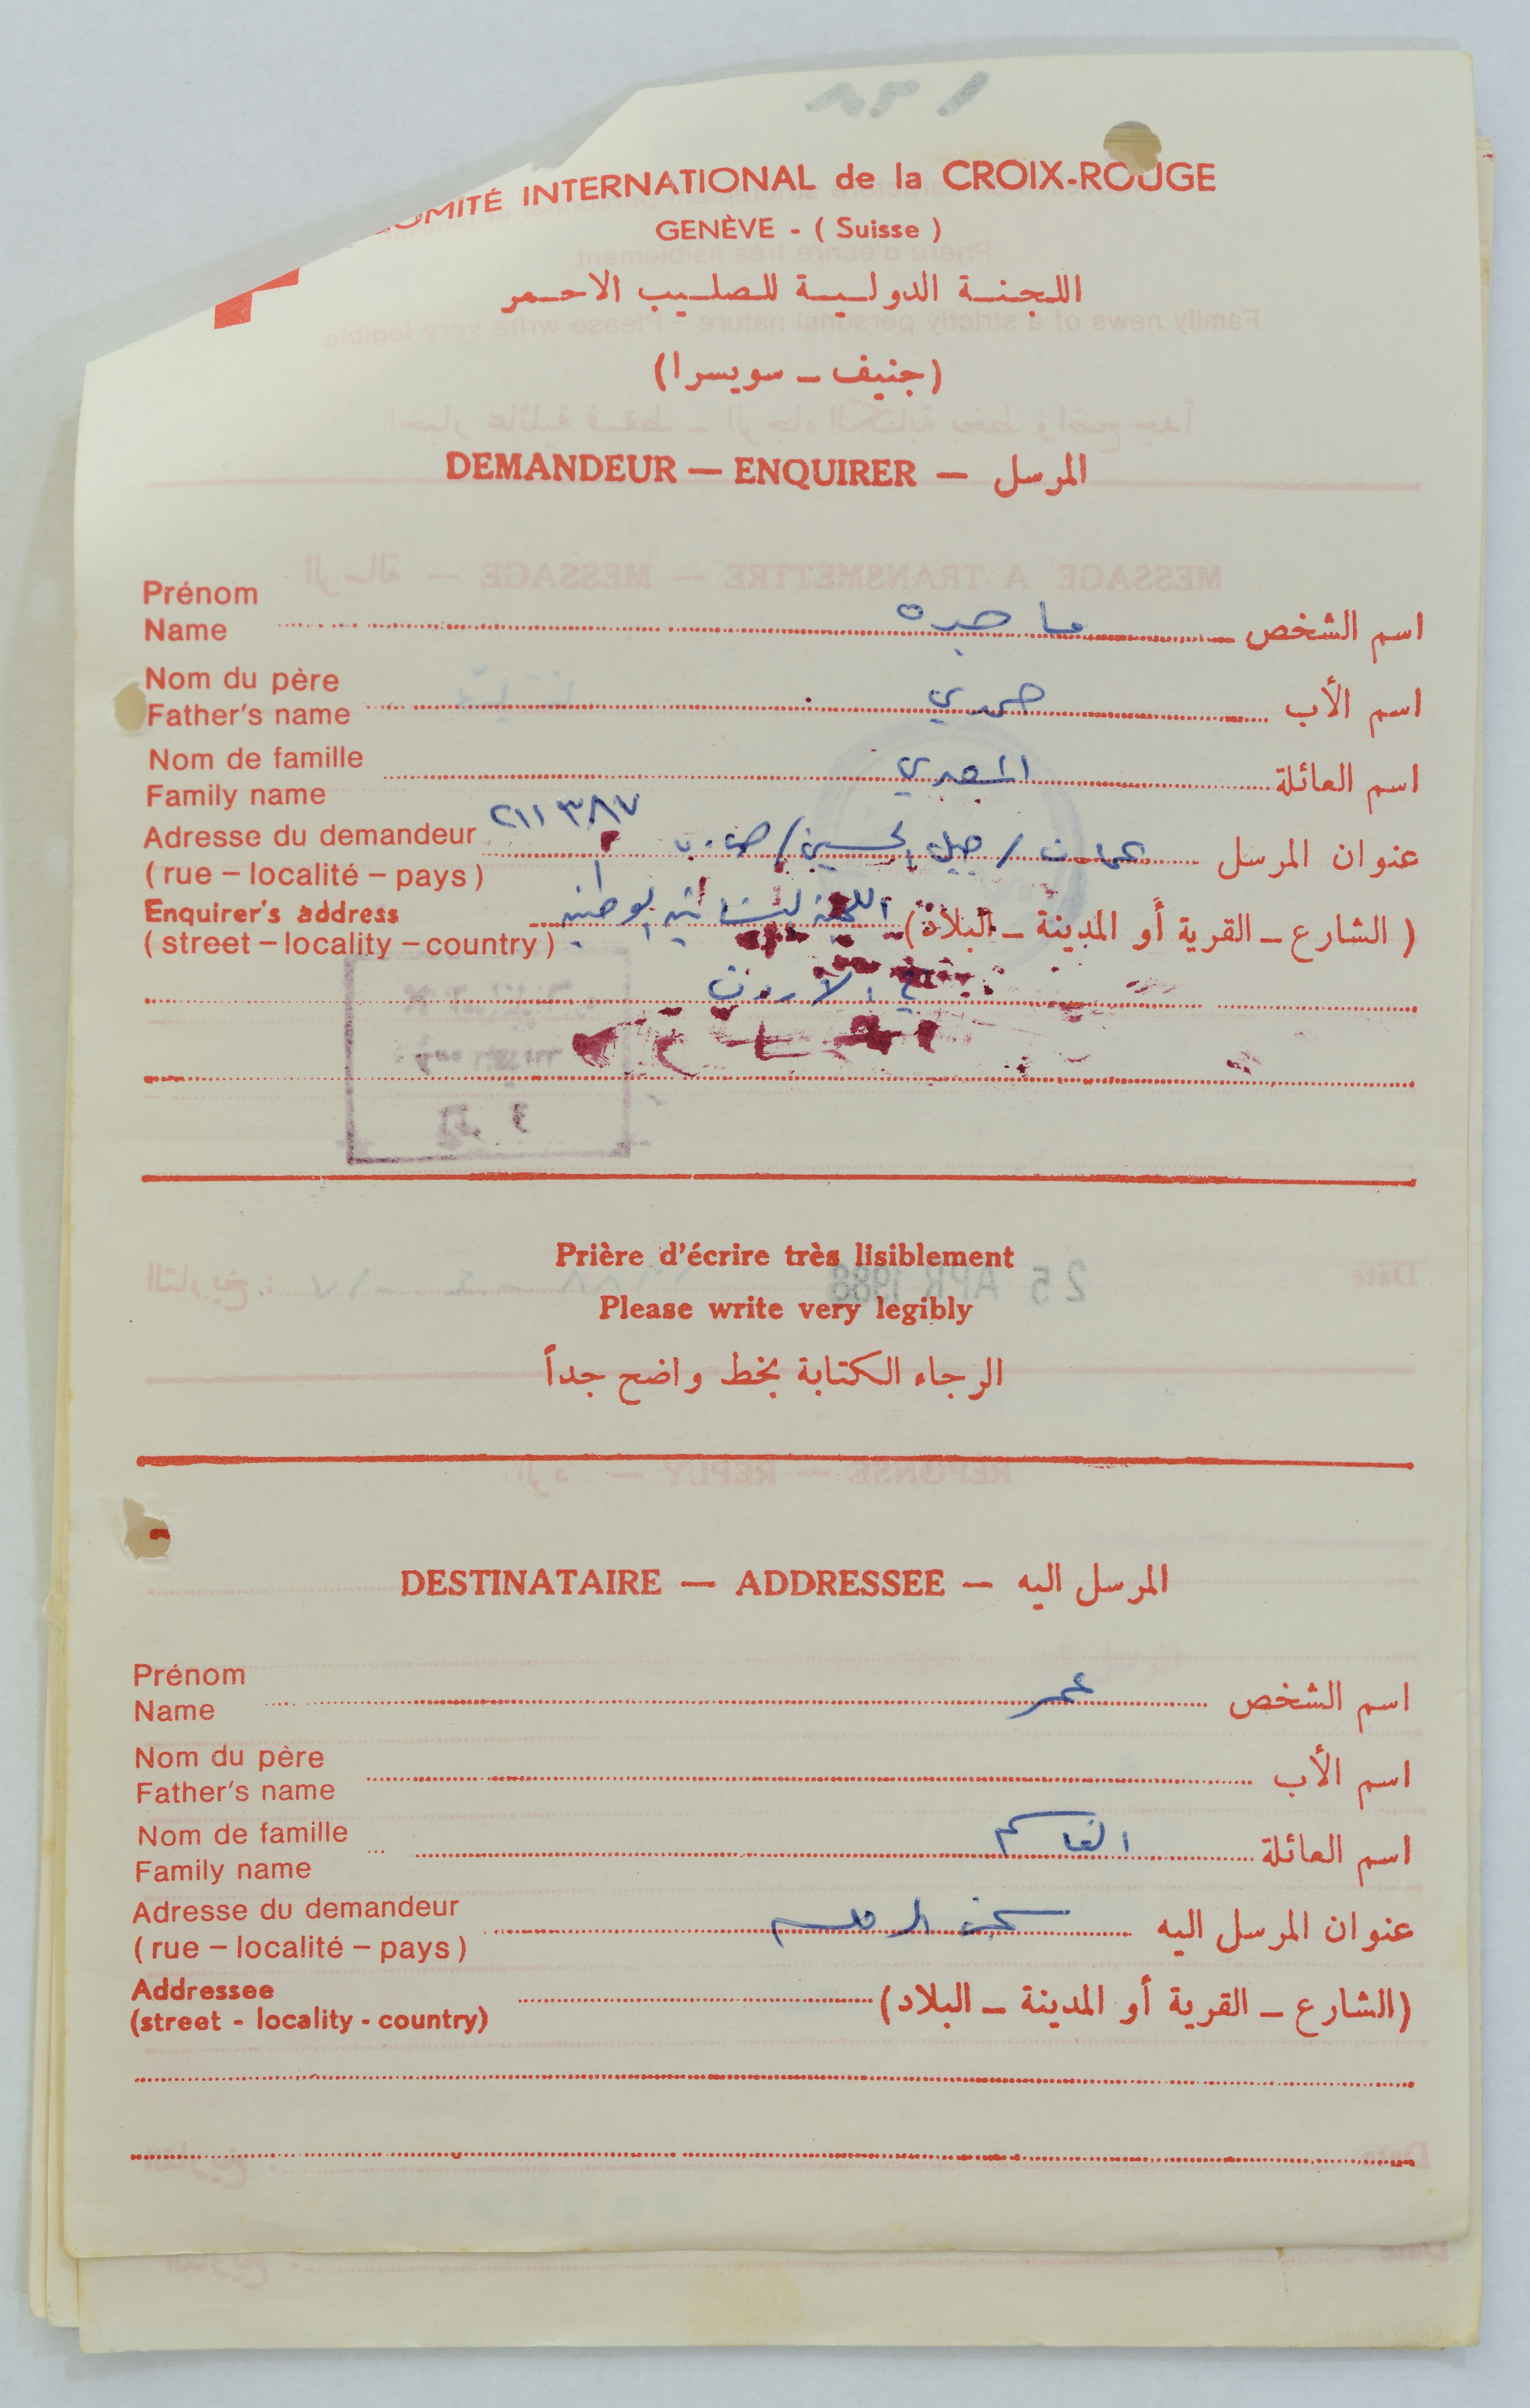 ١٣٨
COMITÉ INTERNATIONAL de la CROIX-ROUGE
GENÈVE - ( Suisse )
اللجنة الدولية للصليب الاحمر
(جنيف ـ سويسرا)
DEMANDEUR — ENQUIRER — المرسل
Prénom
Name
اسم الشخص ماجده
Nom du père
Father's name
اسم الأب حمدي
Nom de famille
Family name
اسم العائلة المصري
Adresse du demandeur
(rue – localité – pays)
عنوان المرسل عمان / جبل الحسين / ص.ب ٢١١٣٨٧
Enquirer's address
(street – locality – country)
(الشارع ـ القرية أو المدينة ـ البلاد) اللجنة النسائية الوطنية
في الاردن
Prière d'écrire très lisiblement
Please write very legibly
الرجاء الكتابة بخط واضح جداً
25 APR 1988
DESTINATAIRE — ADDRESSEE — المرسل اليه
Prénom
Name
اسم الشخص عمر
Nom du père
Father's name
اسم الأب
Nom de famille
Family name
اسم العائلة القاسم
Adresse du demandeur
(rue – localité – pays)
عنوان المرسل اليه سجن الرمله
Addressee
(street - locality - country)
(الشارع ـ القرية أو المدينة ـ البلاد)